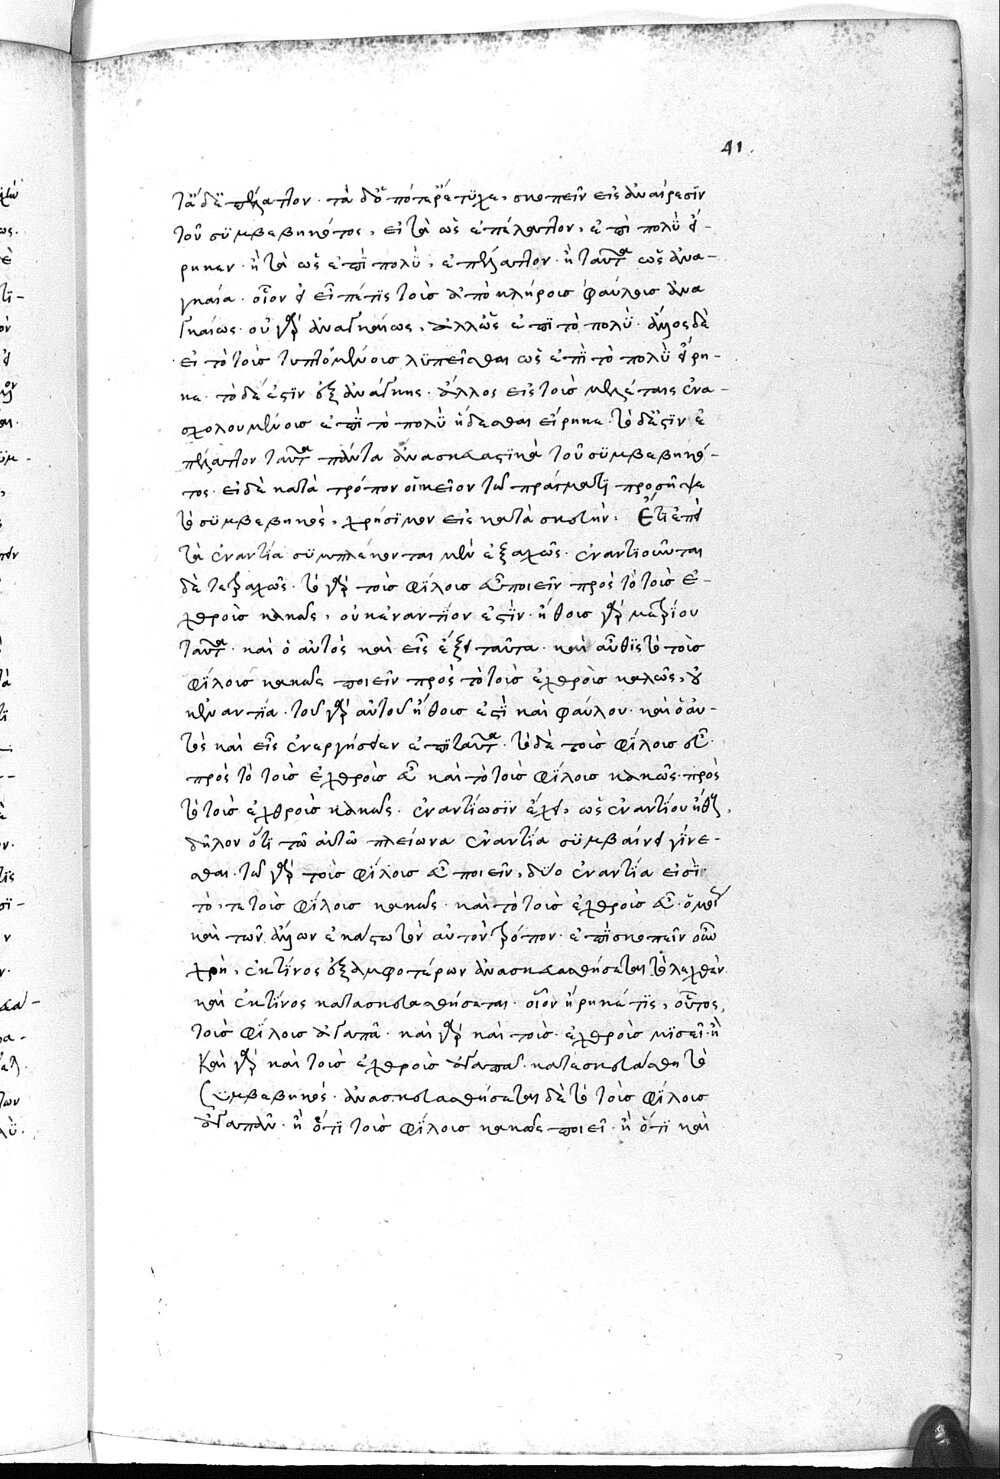 41.
τὰ δὲ ἐπ' ἔλαττον· τὰ δ' ὁπότερ' ἔτυχε, σκοπεῖν εἰς ἀναίρεσϊν
τοῦ συμβεβηκότος, εἰ τὰ ὡς ἐπέλαττον, ἐπὶ πολὺ εἴ-
ρηκεν· ἢ τὰ ὡς ἐπὶ πολὺ, ἐπ' ἔλαττον· ἢ ταῦτα ὡς ἀνα-
γκαία· οἷον εἰ εἴπέ τις τοὺς ἀποκλήρους φαύλους ἀνα
γκαίως· οὐ γὰρ ἀναγκαίως, ἀλλ' ὡς ἐπὶ τὸ πολύ· ἄλλος δὲ
εἰ τὸ τοὺς τυπτομένους λυπεῖσθαι ὡς ἐπὶ τὸ πολὺ εἴρη-
κε· τὸ δέ ἐστιν ἐξ ἀνάγκης· ἄλλος εἰς τοὺς μελέταις ἐνα
σχολουμένους ἐπὶ τὸ πολὺ ἥδεσθαι εἴρηκε· τὸ δ' ἔστιν ἐ
π' ἔλαττον ταῦτα πάντα ἀνασκευαστικὰ τοῦ συμβεβηκό-
τος· εἰ δὲ κατὰ τρόπον οἰκεῖον τῷ πράγματι προσῆψε
τὸ συμβεβηκὸς, χρήσιμον εἰς κατασκευήν· Ἔτι ἐπεὶ
τὰ ἐναντία συμπλέκονται μὲν ἑξαχῶς· ἐναντιοῦνται
δὲ τετραχῶς· τὸ γὰρ τοὺς φίλους εὖ ποιεῖν πρὸς τὸ τοὺς ἐ-
χθροὺς κακῶς, οὐκ ἐναντίον ἐστὶν· ἤθους γὰρ μετρίου
ταῦτα· καὶ ὁ αὐτὸς καὶ εἷς ἕξει ταῦτα· καὶ αὖθις τὸ τοὺς
φίλους κακῶς ποιεῖν πρὸς τὸ τοὺς ἐχθροὺς καλῶς, οὐ
κ ἐναντία· τοῦ γὰρ αὐτοῦ ἤθους ἐστὶ καὶ φαύλου· καὶ ὁ αὐ-
τὸς καὶ εἷς ἐνεργήσειεν ἐπὶ ταῦτα· τὸ δὲ τοὺς φίλους εὖ·
πρὸς τὸ τοὺς ἐχθροὺς εὖ καὶ τὸ τοὺς φίλους κακῶς· πρὸς
τὸ τοὺς ἐχθροὺς κακῶς· ἐναντίωσιν ἔχει, ὡς ἐναντίου ἤθους,
δῆλον ὅτι τῷ αὐτῷ πλείωνα ἐναντία συμβαίνει γίνε-
σθαι· τῷ γὰρ τοὺς φίλους εὖ ποιεῖν, δύο ἐναντία εἰσὶ·
τό, τε τοὺς φίλους κακῶς· καὶ τὸ τοὺς ἐχθροὺς εὖ· ὁμοῦ
καὶ τῶν ἄλλων ἑκάστῳ τὸν αὐτὸν τρόπον· ἐπισκοπεῖν οὖν
χρὴ, ἐκ τίνος ἐξ ἀμφοτέρων ἀνασκευασθήσεται τὸ λεχθὲν
καὶ ἐκ τίνος κατασκευασθήσεται· οἷον εἴρηκέ τις, οὗτος
τοὺς φίλους ἀγαπᾷ· καὶ γὰρ καὶ τοὺς ἐχθροὺς μισεῖ· ἢ
Καὶ γὰρ καὶ τοὺς ἐχθροὺς ἀγαπᾷ· κατεσκευάσθη τὸ
Συμβεβηκός· ἀνασκευασθήσεται δὲ τὸ τοὺς φίλους
ἀγαπᾶν· ἢ ὅτι τοὺς φίλους κακῶς ποιεῖ· ἢ ὅτι καὶ